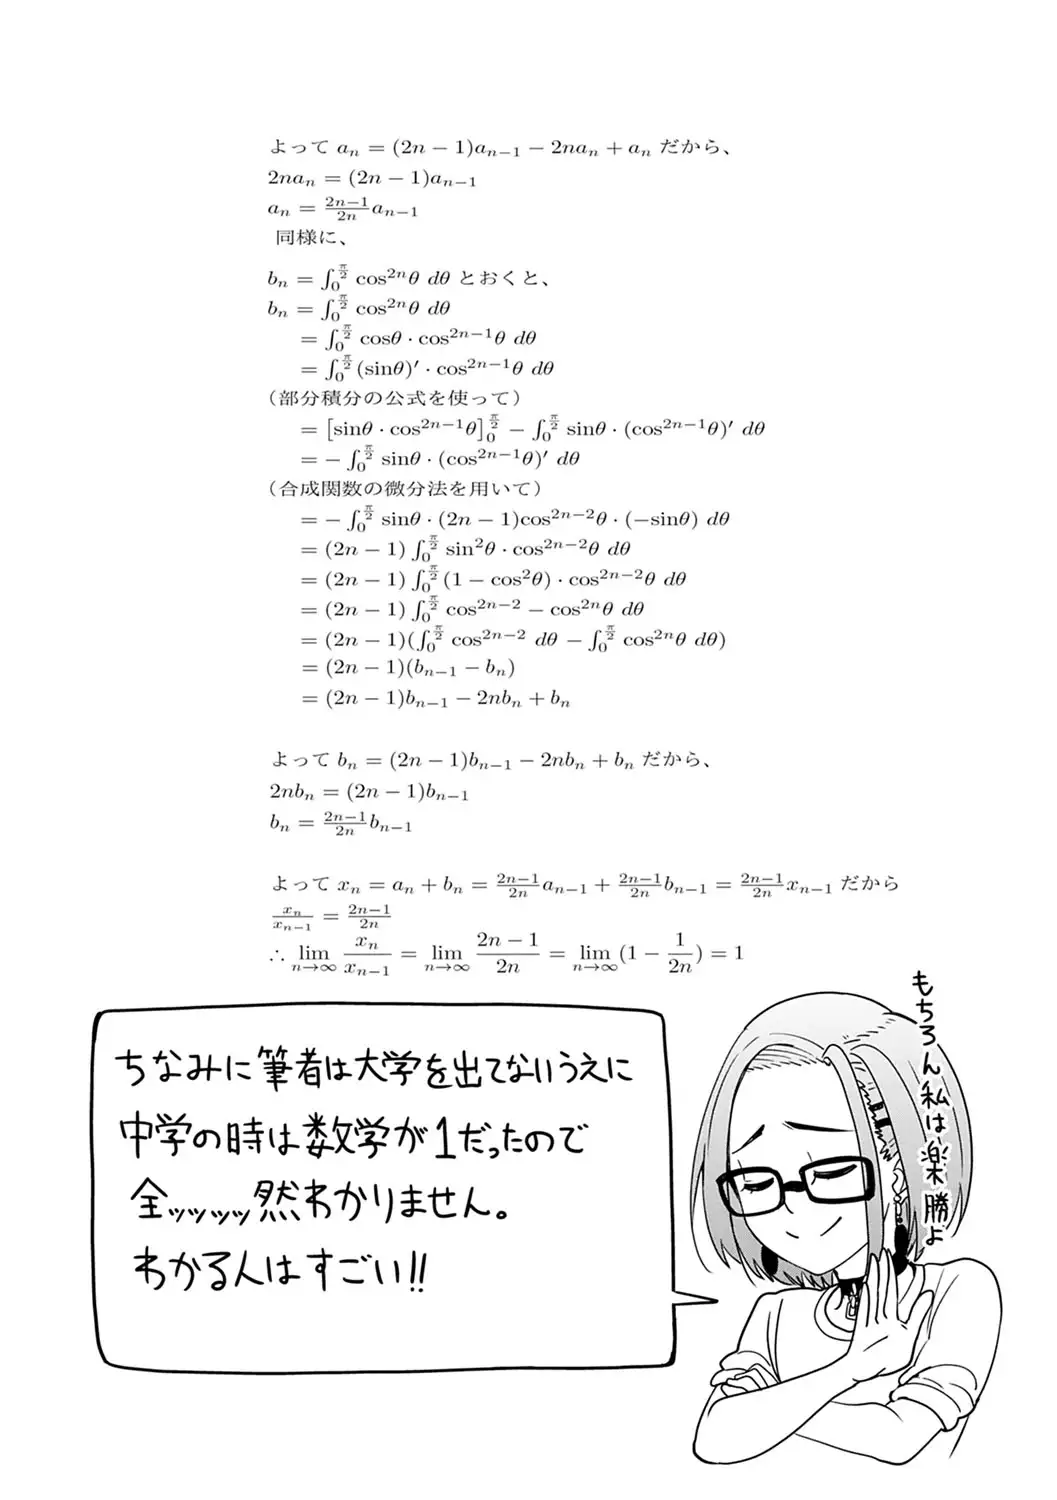 よって a_n = (2n − 1)a_{n−1} − 2na_n + a_n だから、
2na_n = (2n − 1)a_{n−1}
a_n = \frac{2n−1}{2n}a_{n−1}
同様に、
b_n = ∫_0^{\frac{π}{2}} cos^{2n}θ dθ とおくと、
b_n = ∫_0^{\frac{π}{2}} cos^{2n}θ dθ
= ∫_0^{\frac{π}{2}} cosθ · cos^{2n−1}θ dθ
= ∫_0^{\frac{π}{2}} (sinθ)′ · cos^{2n−1}θ dθ
（部分積分の公式を使って）
= [sinθ · cos^{2n−1}θ]_0^{\frac{π}{2}} − ∫_0^{\frac{π}{2}} sinθ · (cos^{2n−1}θ)′ dθ
= − ∫_0^{\frac{π}{2}} sinθ · (cos^{2n−1}θ)′ dθ
（合成関数の微分法を用いて）
= − ∫_0^{\frac{π}{2}} sinθ · (2n − 1)cos^{2n−2}θ · (−sinθ) dθ
= (2n − 1) ∫_0^{\frac{π}{2}} sin^2θ · cos^{2n−2}θ dθ
= (2n − 1) ∫_0^{\frac{π}{2}} (1 − cos^2θ) · cos^{2n−2}θ dθ
= (2n − 1) ∫_0^{\frac{π}{2}} cos^{2n−2} − cos^{2n}θ dθ
= (2n − 1)(∫_0^{\frac{π}{2}} cos^{2n−2} dθ − ∫_0^{\frac{π}{2}} cos^{2n}θ dθ)
= (2n − 1)(b_{n−1} − b_n)
= (2n − 1)b_{n−1} − 2nb_n + b_n
よって b_n = (2n − 1)b_{n−1} − 2nb_n + b_n だから、
2nb_n = (2n − 1)b_{n−1}
b_n = \frac{2n−1}{2n}b_{n−1}
よって x_n = a_n + b_n = \frac{2n−1}{2n}a_{n−1} + \frac{2n−1}{2n}b_{n−1} = \frac{2n−1}{2n}x_{n−1} だから
\frac{x_n}{x_{n−1}} = \frac{2n−1}{2n}
∴ \lim_{n→∞} \frac{x_n}{x_{n−1}} = \lim_{n→∞} \frac{2n − 1}{2n} = \lim_{n→∞}(1 − \frac{1}{2n}) = 1
もちろん私は楽勝よ
ちなみに筆者は大学を出てないうえに
中学の時は数学が1だったので
全ッッッッ然わかりません。
わかる人はすごい!!